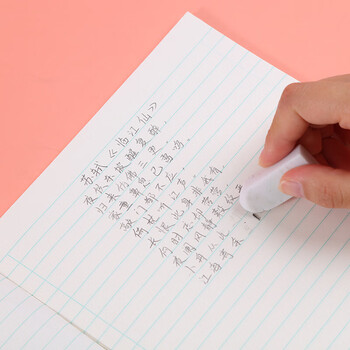 苏轼《临江仙》
夜饮东坡醒复醉,
归来仿佛三更。
家童鼻息已雷鸣。
敲门都不应,
倚杖听江声。
长恨此身非我有,
何时忘却营营。
夜阑风静縠纹平。
小舟从此逝,
江海寄余